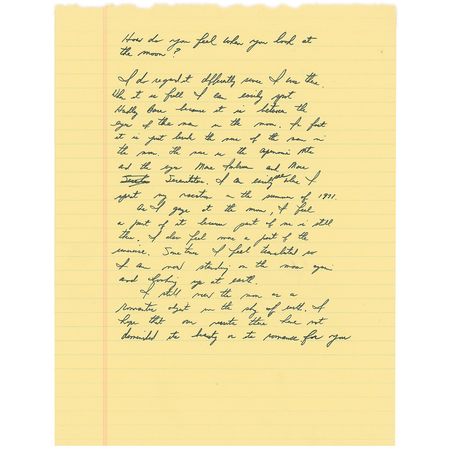 How do you feel when you look at
the moon?
I do regard it differently since I was there.
When it is full I can easily spot
Hadley Base because it is between the
eyes of the man in the moon. In fact
it is just the nose of the man in
the moon. The nose is the Apennine Mts
and the eyes Mare Imbrium and Mare
Serenitatis. I can easily see where I
spent my vacation in the summer of 1971.
As I gaze at the moon, I feel
a part of it because part of me is still
there. I also feel now a part of the
universe. Some time I feel translated so
I am now standing on the moon again
and looking up at earth.
I still view the moon as a
romantic object in the sky of earth. I
hope that our visits there have not
diminished its beauty or its romance for you